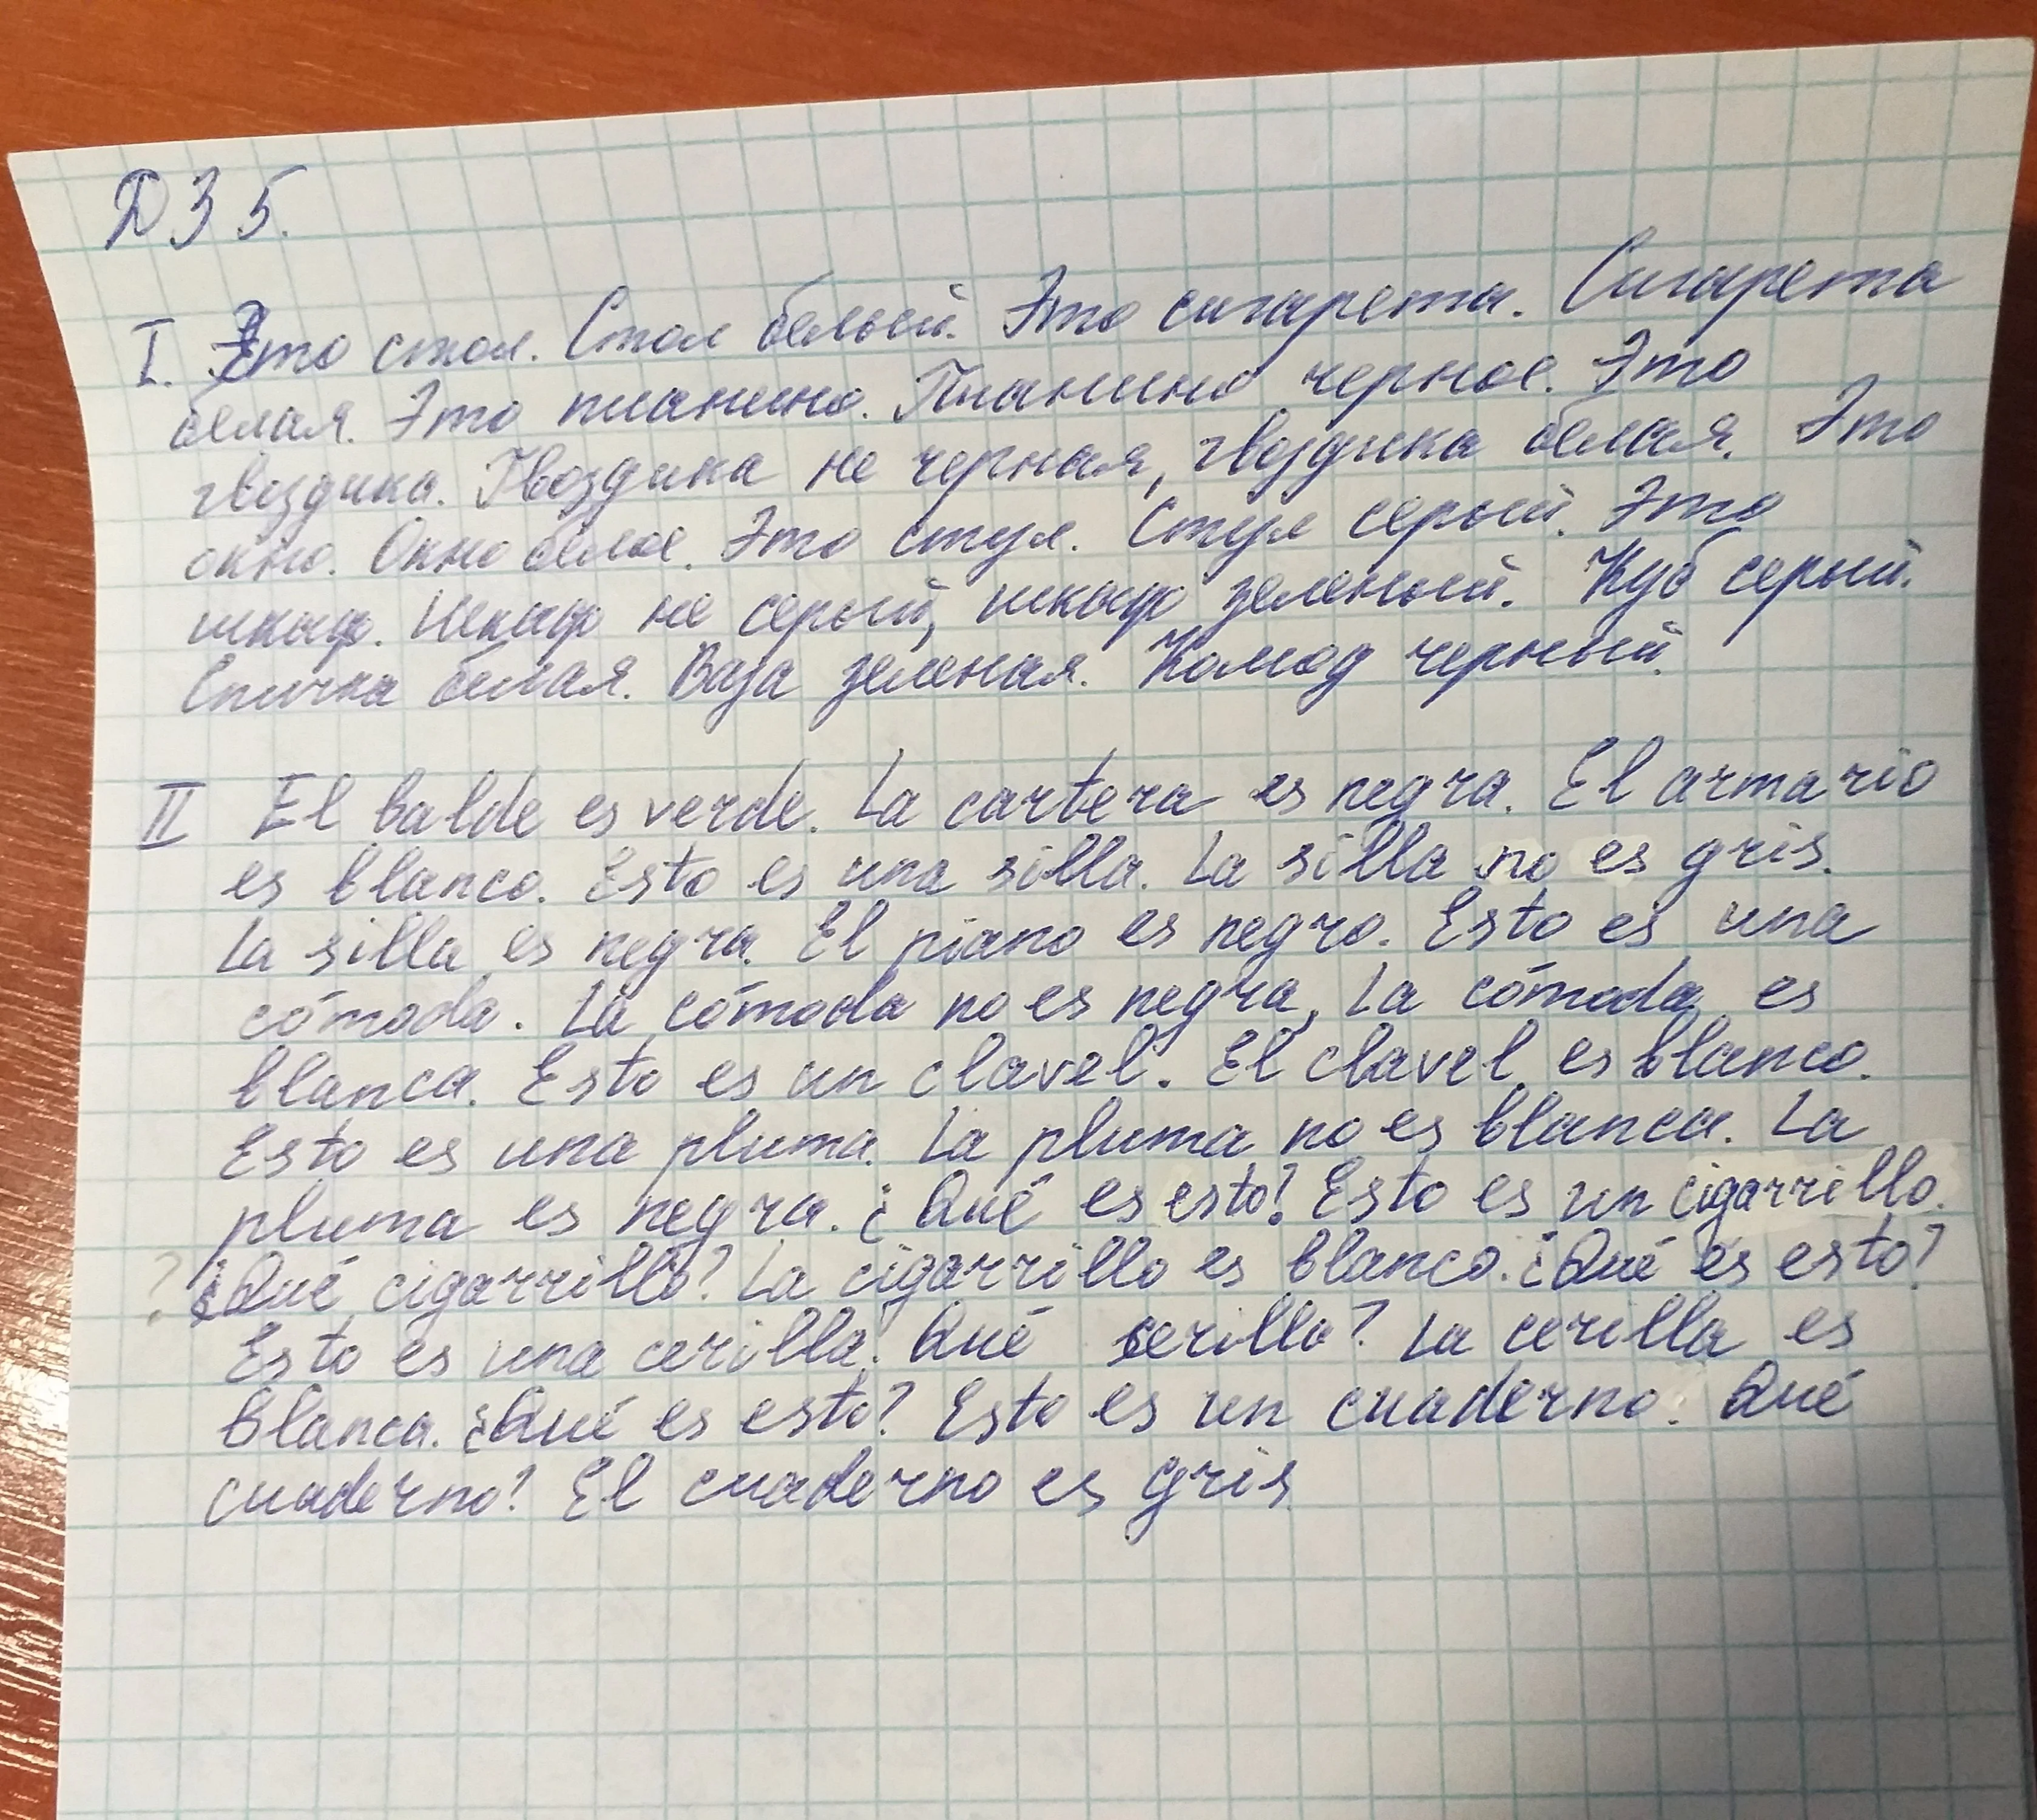 ДЗ 5.
I. Это стол. Стол белый. Это сигарета. Сигарета
белая. Это пианино. Пианино черное. Это
гвоздика. Гвоздика не черная, гвоздика белая. Это
окно. Окно белое. Это стул. Стул серый. Это
шкаф. Шкаф не серый, шкаф зеленый. Куб серый.
Спичка белая. Ваза зеленая. Комод черный.
II El balde es verde. La cartera es negra. El armario
es blanco. Esto es una silla. La silla no es gris.
La silla es negra. El piano es negro. Esto es una
cómoda. La cómoda no es negra, la cómoda es
blanca. Esto es un clavel. El clavel es blanco.
Esto es una pluma. La pluma no es blanca. La
pluma es negra. ¿Qué es esto? Esto es un cigarrillo.
? ¿Qué cigarrillo? La cigarrillo es blanco. ¿Qué es esto?
Esto es una cerilla. Qué serilla? La cerilla es
blanca. ¿Qué es esto? Esto es un cuaderno. Qué
cuaderno? El cuaderno es gris.